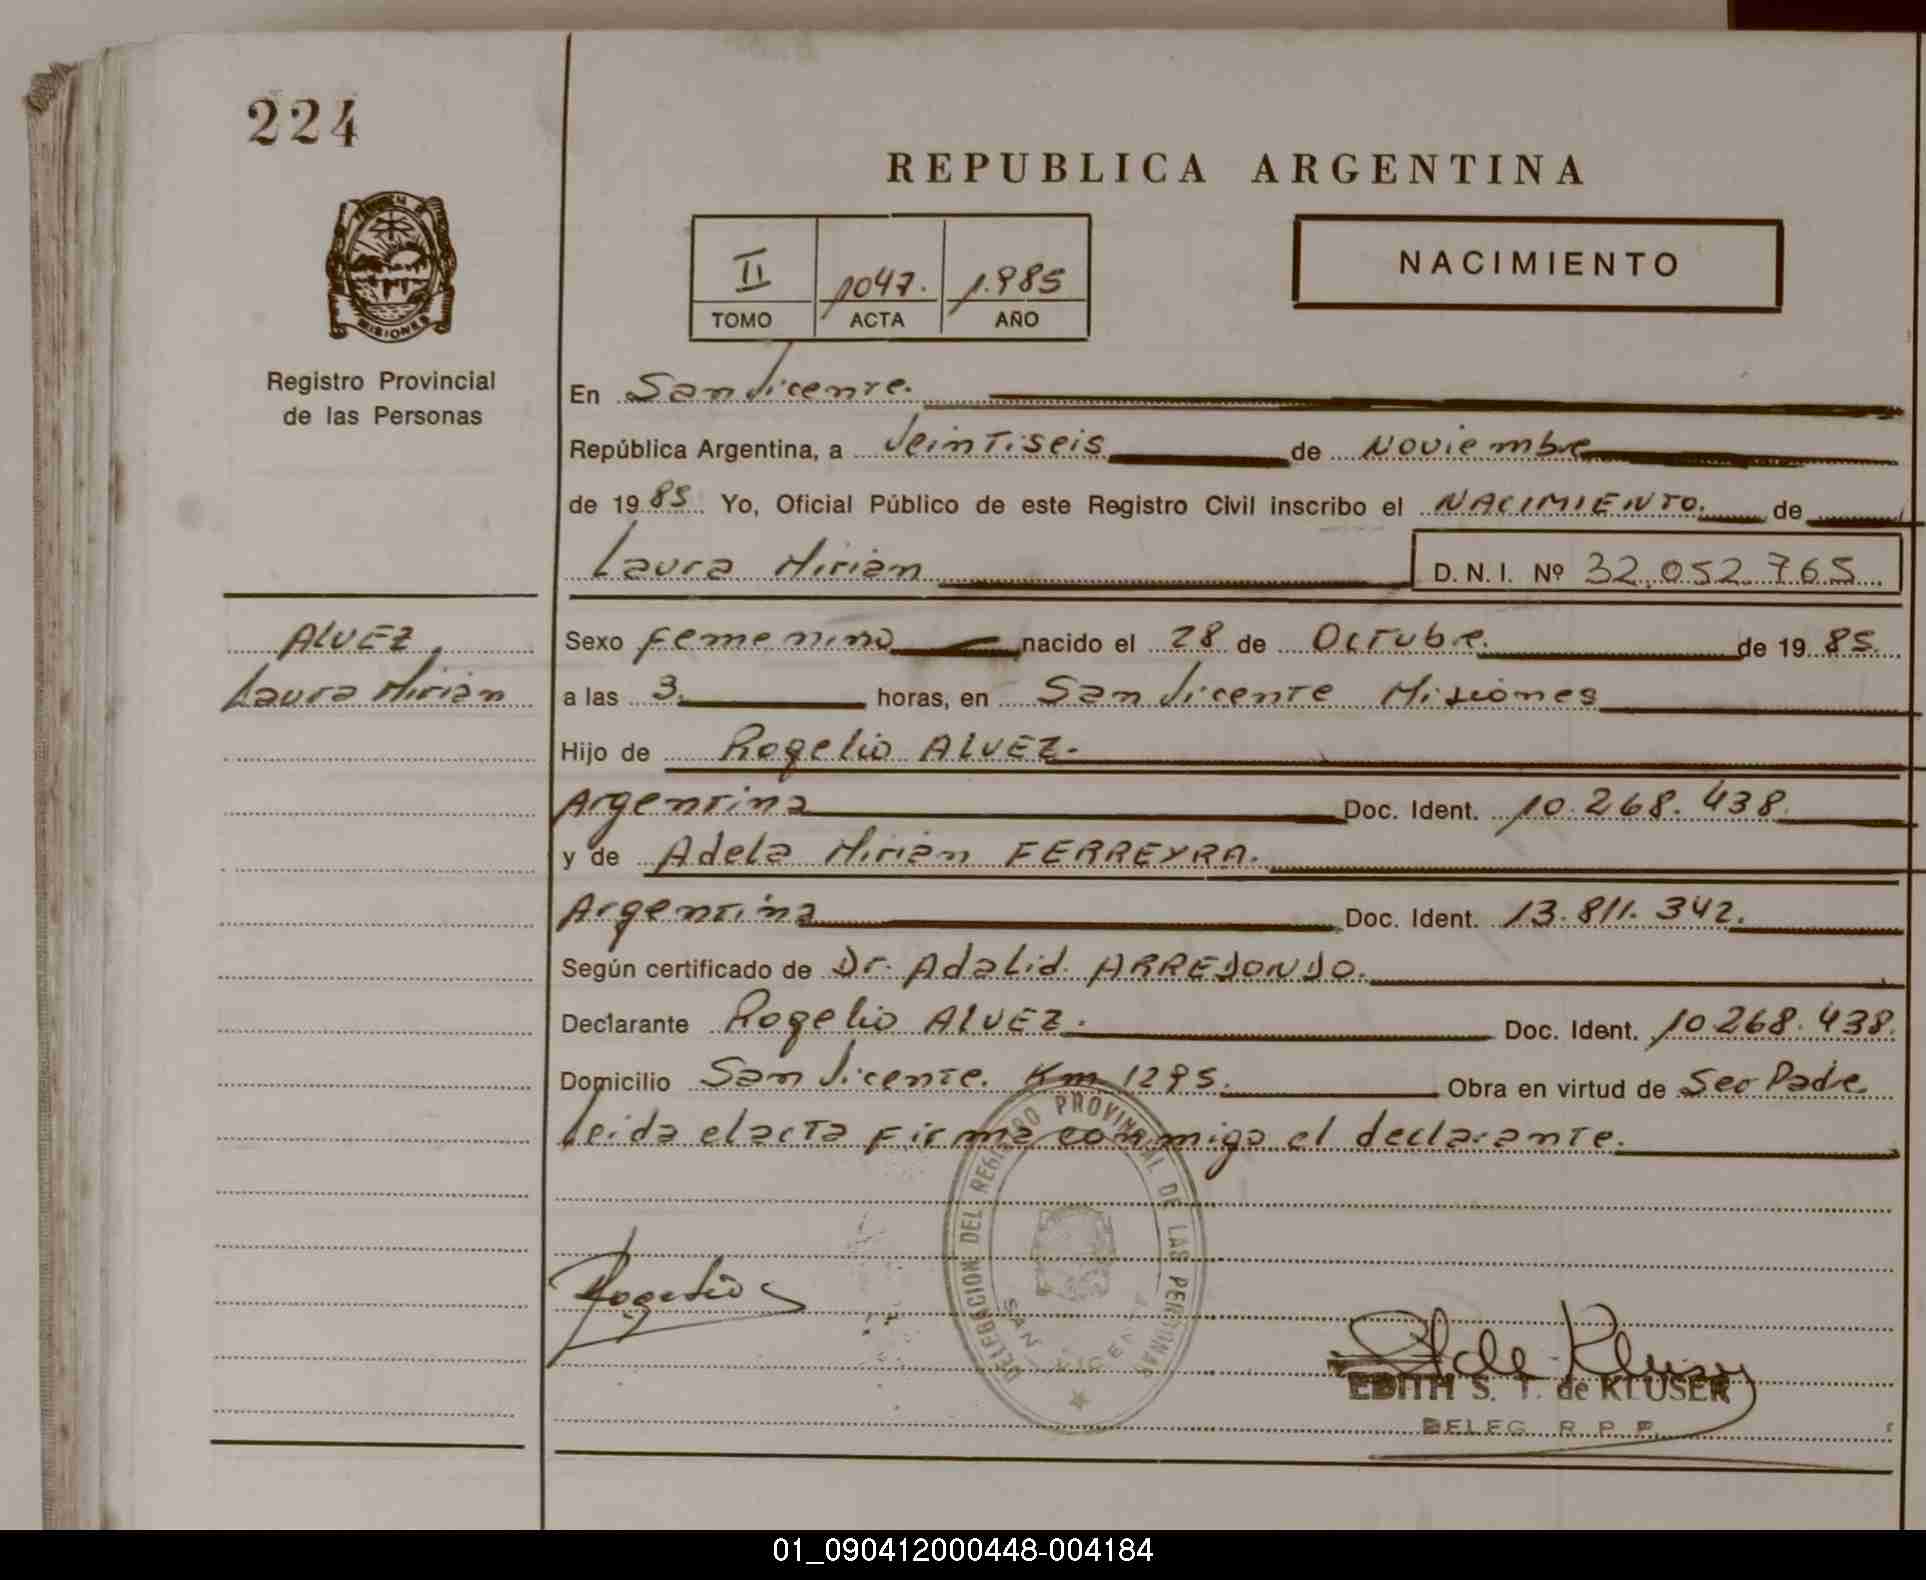 224
REPUBLICA ARGENTINA
MISIONES
Registro Provincial
de las Personas
II 1047. 1.985
TOMO ACTA AÑO
NACIMIENTO
En San Vicente.
República Argentina, a Veintiseis de Noviembre
de 1985 Yo, Oficial Público de este Registro Civil inscribo el NACIMIENTO. de
Laura Mirian D.N.I. Nº 32.052.765
ALVEZ
Laura Mirian
Sexo Femenino nacido el 28 de Octubre. de 1985.
a las 3. horas, en San Vicente Misiones
Hijo de Rogelio ALVEZ.
Argentina Doc. Ident. 10.268.438.
y de Adela Mirian FERREYRA.
Argentina Doc. Ident. 13.811.342.
Según certificado de Dr. Adalid. ARREDONDO.
Declarante Rogelio ALVEZ. Doc. Ident. 10.268.438.
Domicilio San Vicente. Km 1295. Obra en virtud de Ser Padre.
Leida el acta firma conmigo el declarante.
DELEGACION DEL REGISTRO PROVINCIAL DE LAS PERSONAS
SAN VICENTE
Rogelio
EDITH S. T. de KLUSER
DELEG. R. P. P.
01_090412000448-004184